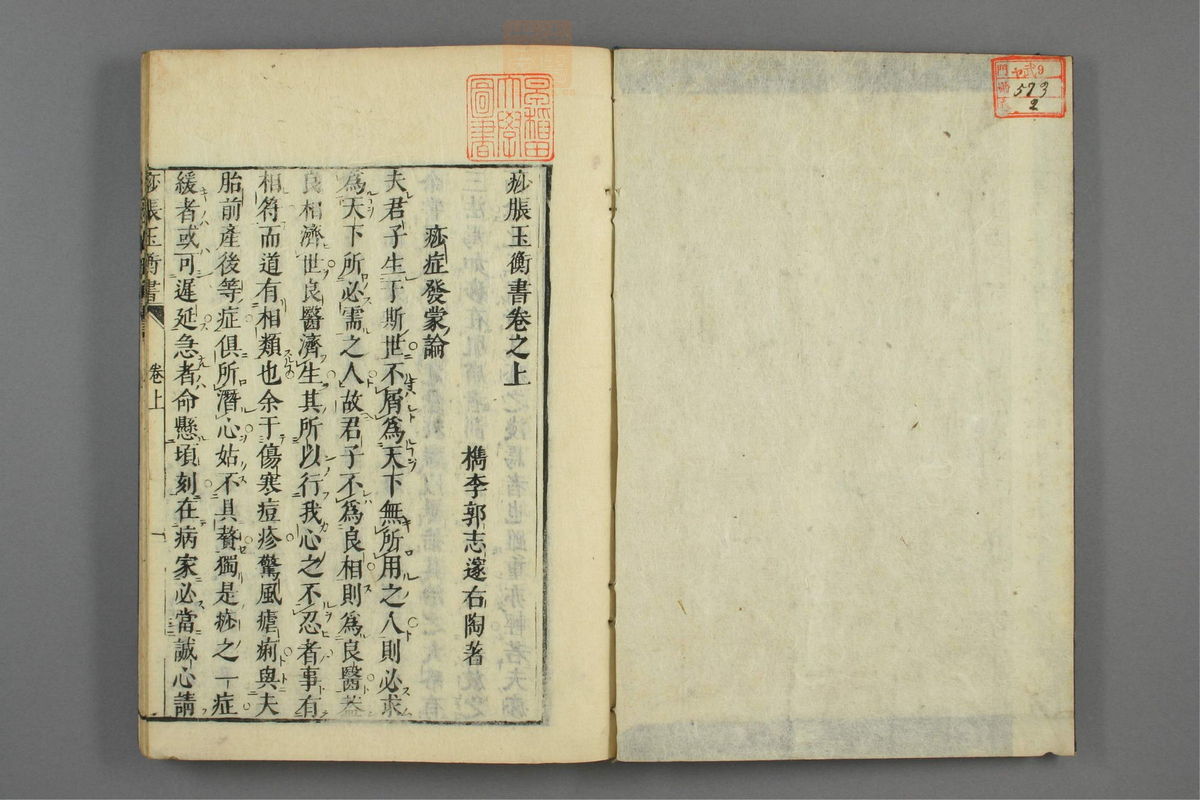 痧脹玉衡書卷之上
檇李郭志邃右陶著
痧症發蒙論
夫君子生于斯世不屑爲天下無所用之人則必求
爲天下所必需之人故君子不爲良相則爲良醫葢
良相濟世良醫濟生其所以行我心之不忍者事有
相符而道有相類也余于傷寒痘疹驚風瘧痢與夫
胎前產後等症俱所潛心姑不具贅獨是痧之一症
緩者或可遲延急者命懸頃刻在病家必當誠心請
痧脹玉衡書
卷上
早稻田大學圖書
573
2